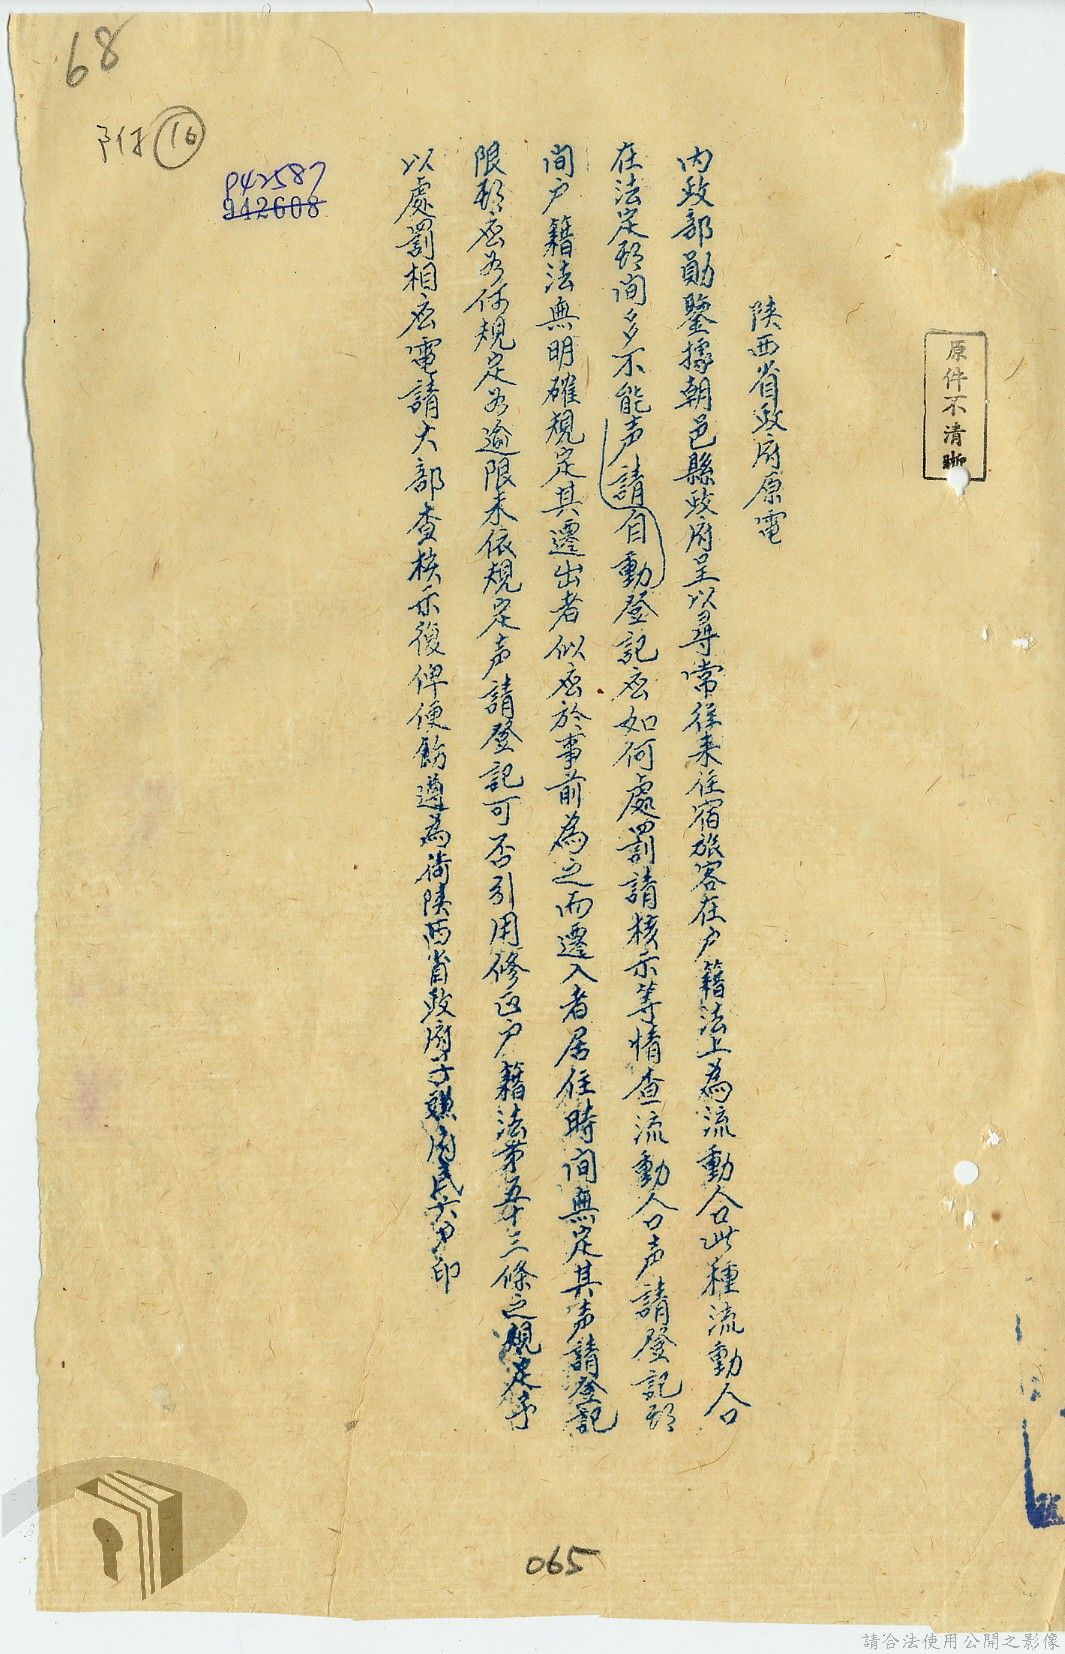 68
附 16
942587
942608
原件不清晰
陕西省政府原電
内政部勛鑒據朝邑縣政府呈以尋常往来住宿旅客在户籍法上為流動人口此種流動人口
在法定期间多不能声請自動登記应如何處罰請核示等情查流動人口声請登記期
间户籍法無明確規定其遷出者似应於事前為之而遷入者居住時间無定其声請登記
限期应为何規定为逾限未依規定声請登記可否引用修正户籍法第五十三條之規定予
以處罰相应電請大部查核示復俾便飭遵為荷陕西省政府子 府民六 印
065
請合法使用公開之影像